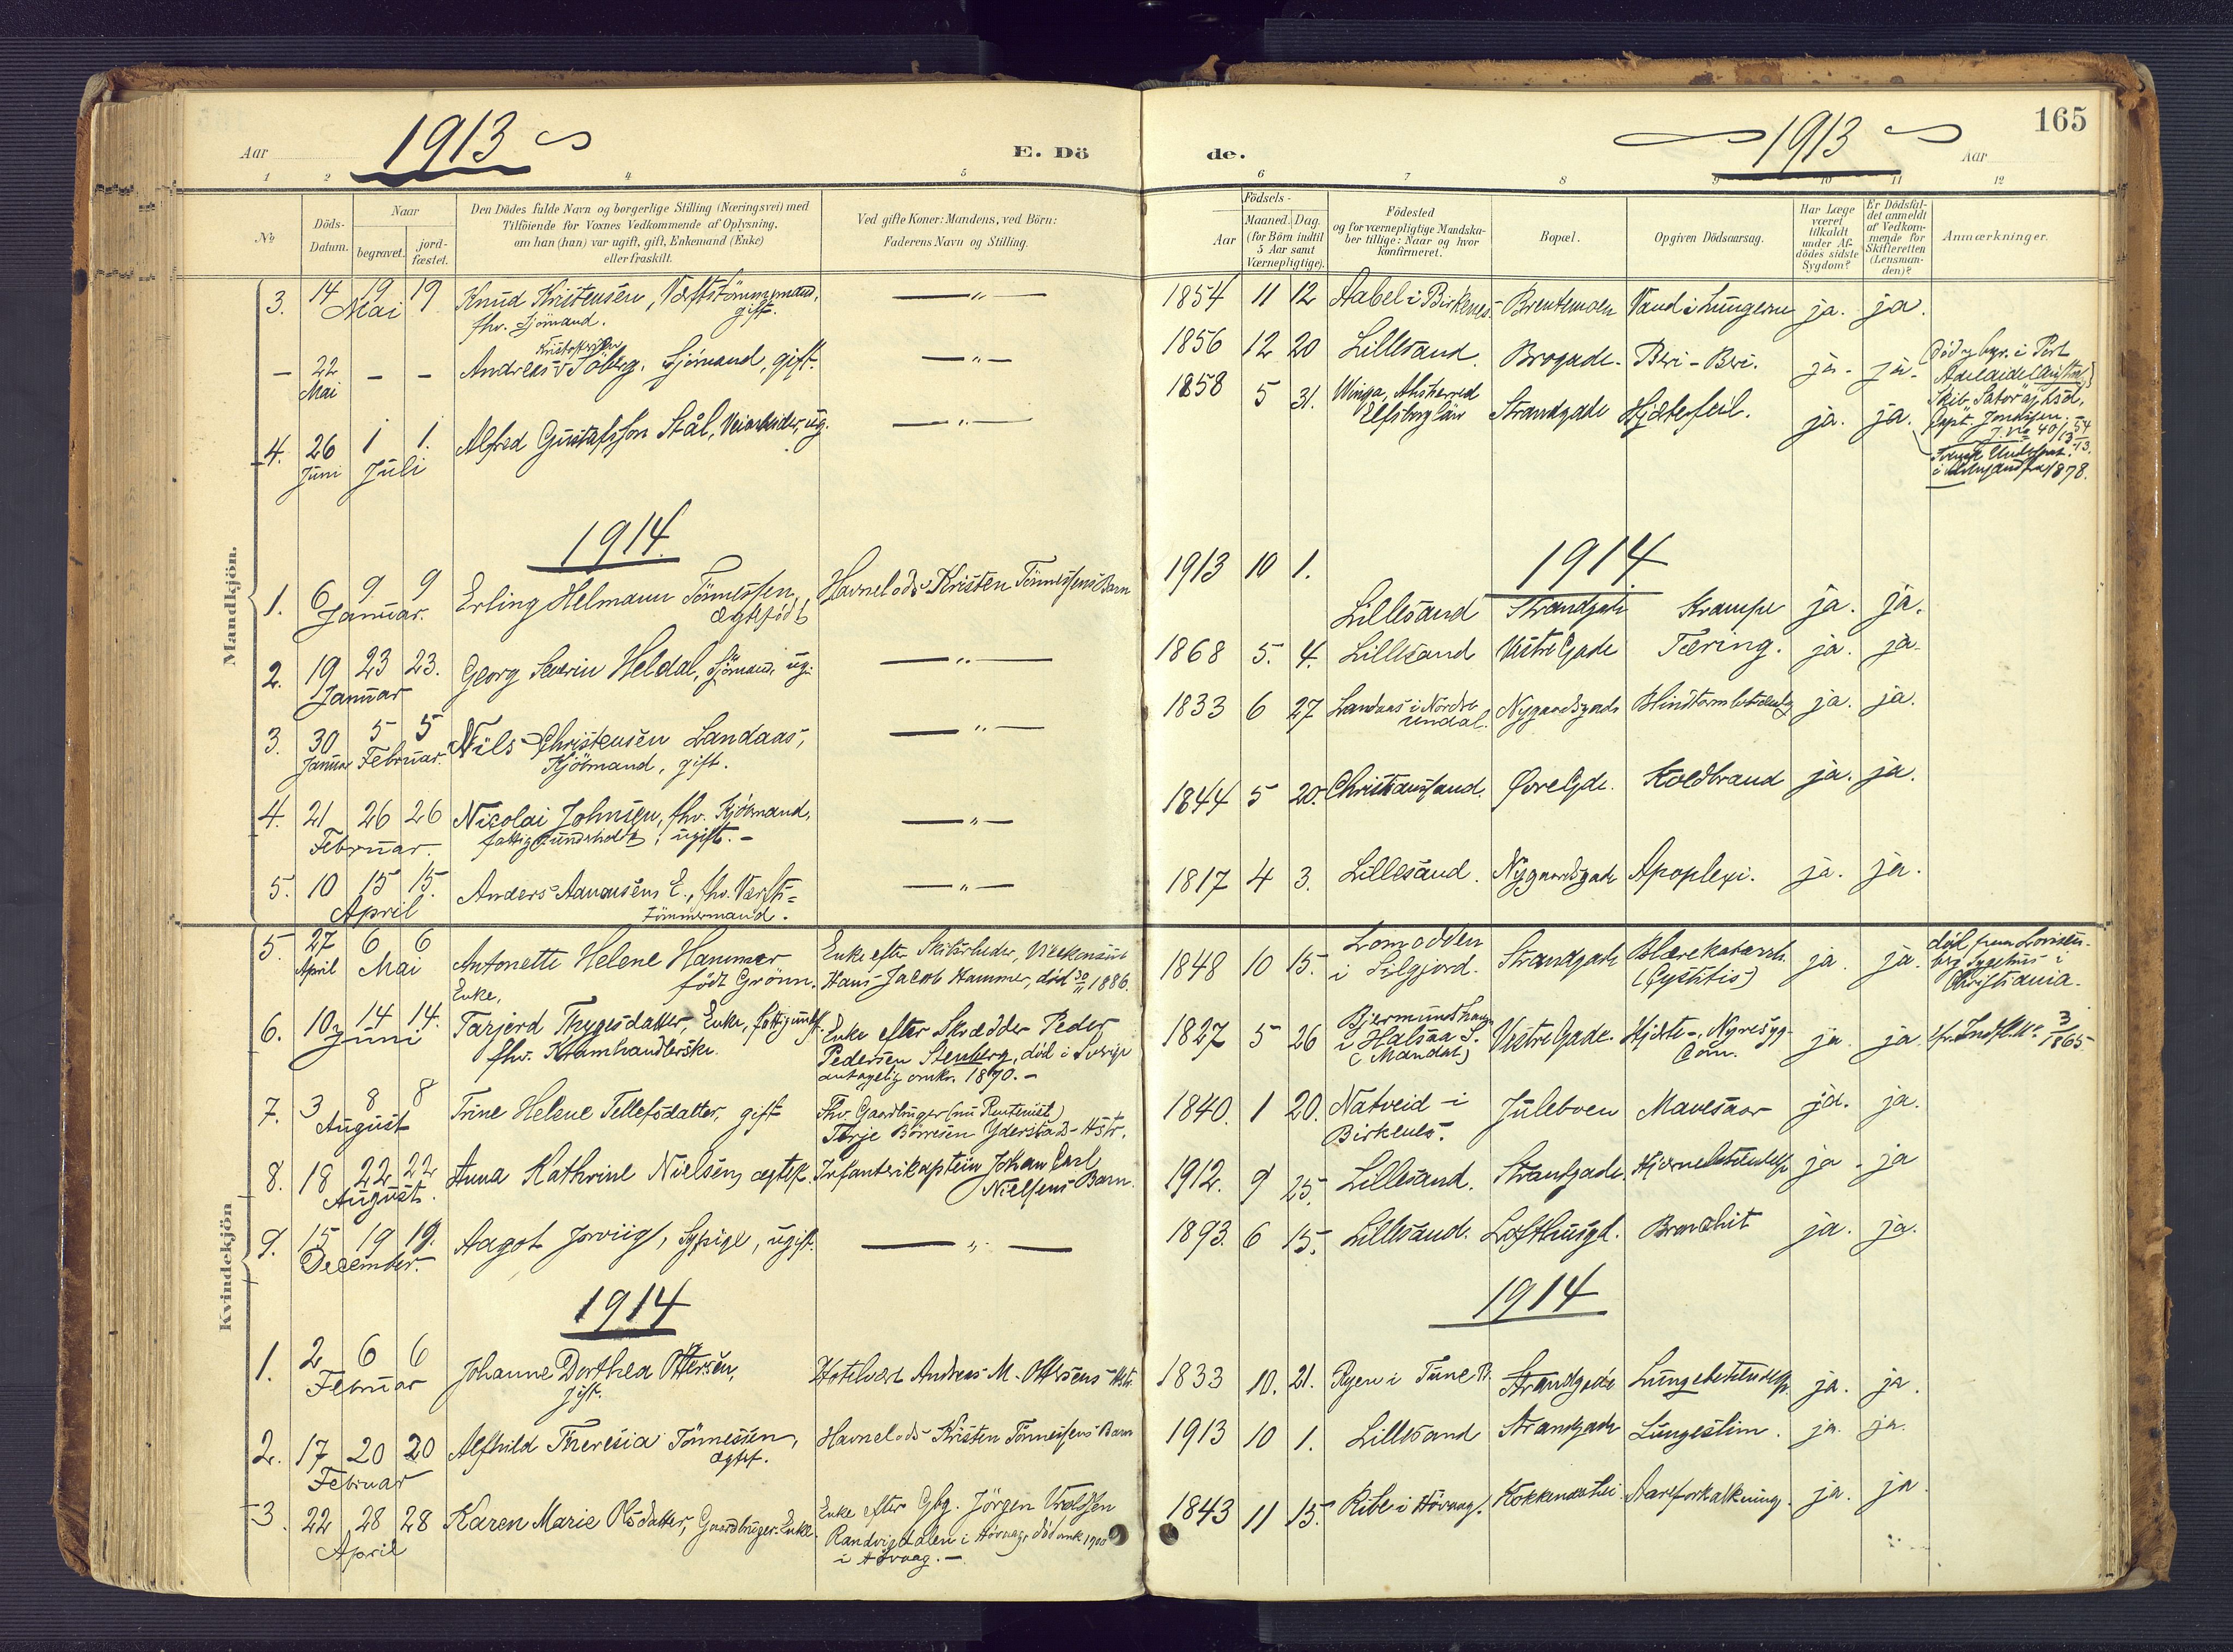 Aar
1913
E. Dö
1
2
4
5
№
Döds-
Datum.
Naar
begravet.
jord-
fæstet.
Den Dödes fulde Navn og borgerlige Stilling (Næringsvei) med
Tilföiende for Voxnes Vedkommende af Oplysning,
om han (hun) var ugift, gift, Enkemand (Enke)
eller fraskilt.
Ved gifte Koner: Mandens, ved Börn:
Faderens Navn og Stilling.
Mandkjön.
3. 14 19 19 Knud Kristensen, Værftstömmermand,
Mai fhv. Sjömand. gift.
— 22 — — Andreas Söberg. Sjömand, gift.
Mai
4. 26 1 1. Alfred Gustafsson Stål, Veiarbeider, ug.
Juni Juli
1914
1. 6 9 9 Erling Helmann Tönnessen, Havnelods Kristen Tönnessens Barn
Januar. ægtefödt
2. 19 23 23. Georg Severin Heldal, Sjömand, ug.
Januar
3. 30 5 5 Nils Christensen Landaas,
Januar Februar. Kjöbmand, gift.
4. 21 26 26 Nicolai Johnsen, fhv. Kjöbmand,
Februar. fattigunderholdt, ugift. -
5. 10 15 15. Anders Aanonsen E., fhv. Værfts=
April tömmermand.
Kvindekjön
5. 27 6 6 Antonette Helene Hammer
April Mai födt Grönn.
Enke,
Enke efter Skibsrheder, Vicekonsul
Hans Jacob Hammer, död 1886.
6. 10 14 14. Tarjerd Thygesdatter, Enke,
Juni fhv. Kramhandlerske.
Enke efter Skrædder Peder
Pedersen Stenberg, död i Sverige
antagelig omkr. 1870. -
7. 3 8 8 Trine Helene Tellefsdatter, gift
August
Fhv. Gaardbruger (nu Rentenist)
Terje Börresen Yderstad - Hstr.
8. 18 22 22 Anna Kathrine Nielsen, ægtef.
August.
Infanterikaptein Johan Carl
Nielsens Barn.
9. 15 19 19. Aagot Jorviig, Sypige, ugift.
December.
1914
1. 2 6 6 Johanne Dorthea Ottersen, Hotelvært Andreas M. Ottersens Hstr.
Februar gift.
2. 17 20 20 Alfhild Theresia Tönnessen, Havnelods Kristen Tönnessens Barn
Februar ægtef.
3. 22 28 28 Karen Marie Olsdatter, Gaardbruger-Enke.
April
Enke efter Gbg. Jörgen
Randvigdalen i Hövaag, död omk 1900
i Hövaag. -
165
de.
1913
Aar
6
7
8
9
10
11
12
Födsels-
Aar
Maaned.
Dag.
(for Börn indtil
5 Aar samt
Værnepligtige).
Födested
og for værnepligtige Mandska-
ber tillige: Naar og hvor
konfirmeret.
Bopæl.
Opgiven Dödsaarsag.
Har Læge
været
tilkaldt
under Af-
dödes sidste
Sygdom?
Er Dödsfal-
det anmeldt
af Vedkom-
mende for
Skifteretten
(Lensman-
den)?
Anmærkninger.
1854 11 12 Aabel i Birkenes Brentemoen Vand i Lungerne ja. ja.
1856 12 20 Lillesand. Brogade. Beri-Beri. ja. ja.
Död og begr. i Port
Adelaide (Austral.)
1858 5 31. Winga,
Elfsborg län Strandgade Hjertefeil. ja. ja.
1878.
1914
1913 10 1. Lillesand Strandgade Krampe ja. ja.
1868 5. 4. Lillesand Vestre Gade Tæring. ja. ja.
1833 6 27 Landaas i Nordre
Undal. Nygaardsgade Blindtarmbetændelse ja. ja.
1844 5 20. Christiansand. Øvre Gde. Koldbrand ja. ja.
1817 4 3. Lillesand. Nygaardsgade Apoplexi. ja. ja.
1848 10 15. Lomodden
i Lilgjord. Strandgade Blærekatarrh
(Cystitis) ja. ja.
död paa Lovisen-
berg Sygehus i
Christiania.
1827 5 26
i Halsaa S.
(Mandal) Vestre Gade. Hjerte-, Nyresyg-
dom. ja ja 3
1865
1840. 1 20. Natveid i
Birkenes. Juleboen Mavesaar ja. ja.
1912. 9 25. Lillesand. Strandgade Hjernebetændelse ja. ja
1893. 6 15. Lillesand. Lofthusgd. Bronchit ja. ja.
1914
1833 10. 21. Ryen i Tune B. Strandgade Lungebetændelse ja. ja.
1913 10 1. Lillesand Strandgade Lungeslim. ja. ja.
1843 11 15. Ribe i Hövaag. Kokkenæs Hei Aareforkalkning. ja. ja